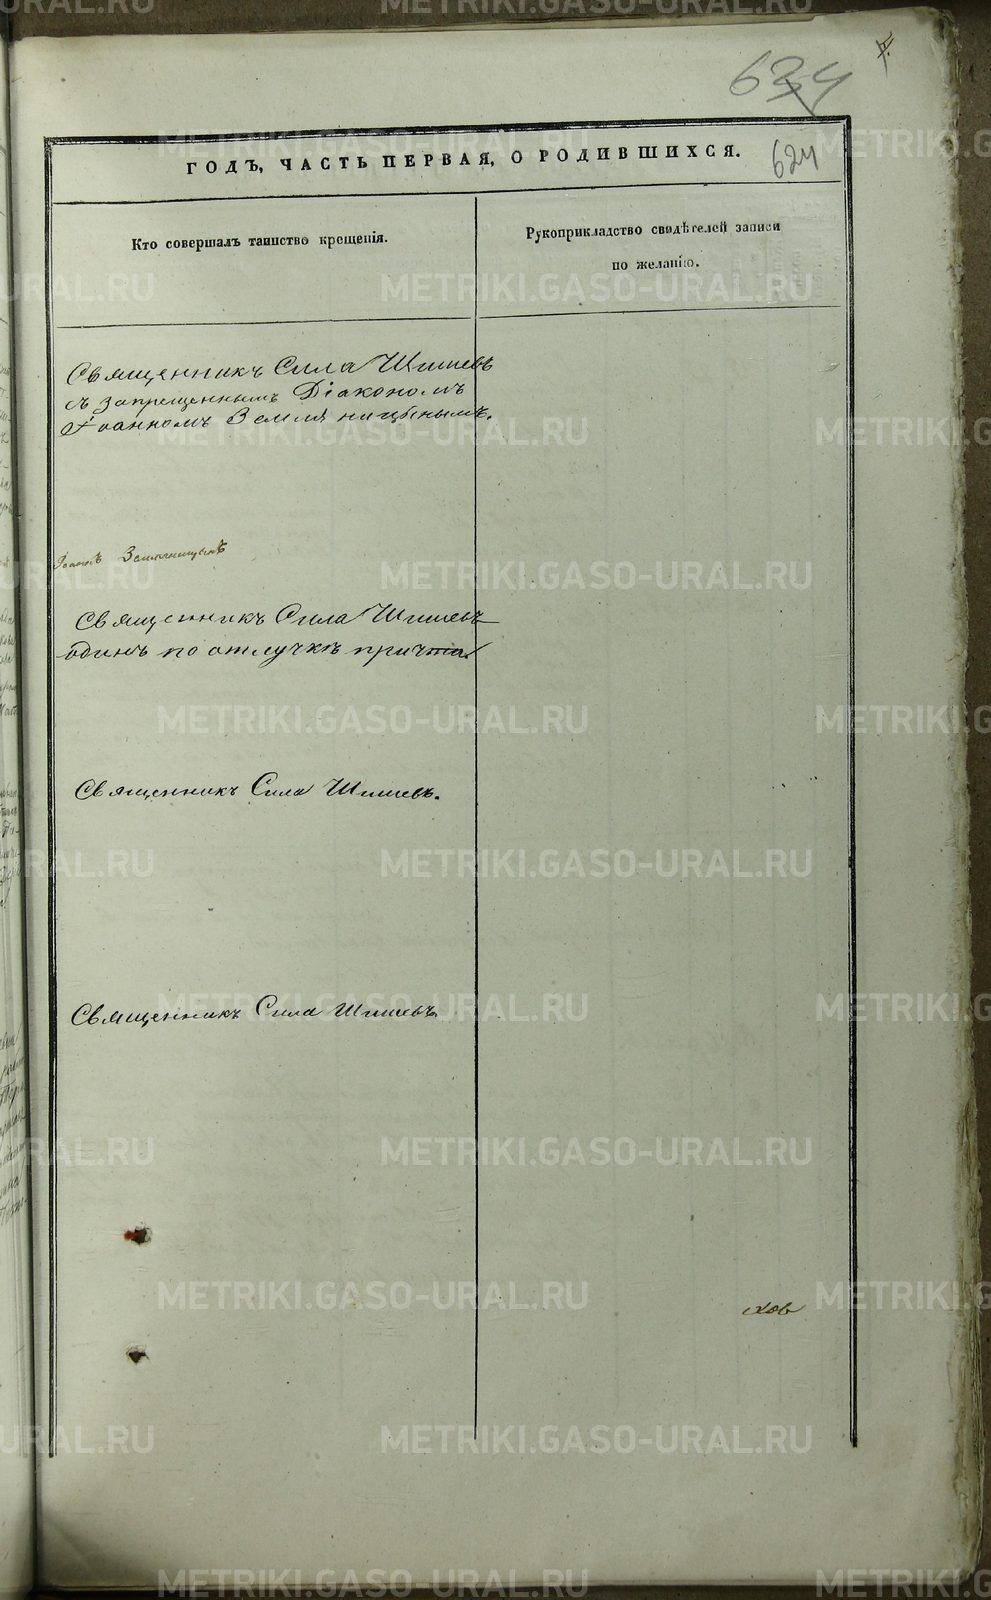 4.
634
ГОДЪ, ЧАСТЬ ПЕРВАЯ, О РОДИВШИХСЯ.
624
Кто совершалъ таинство крещенія.
Рукоприкладство свидѣтелей записи
по желанію.
Священникъ Сила Шишевъ
съ запрещеннымъ Діакономъ
Іоанномъ Земляницынымъ.
Іоаннъ Земляницынъ
Священникъ Сила Шишевъ
одинъ по отлучкѣ причта
Священникъ Сила Шишевъ.
Священникъ Сила Шишевъ
ховъ
METRIKI.GASO-URAL.RU